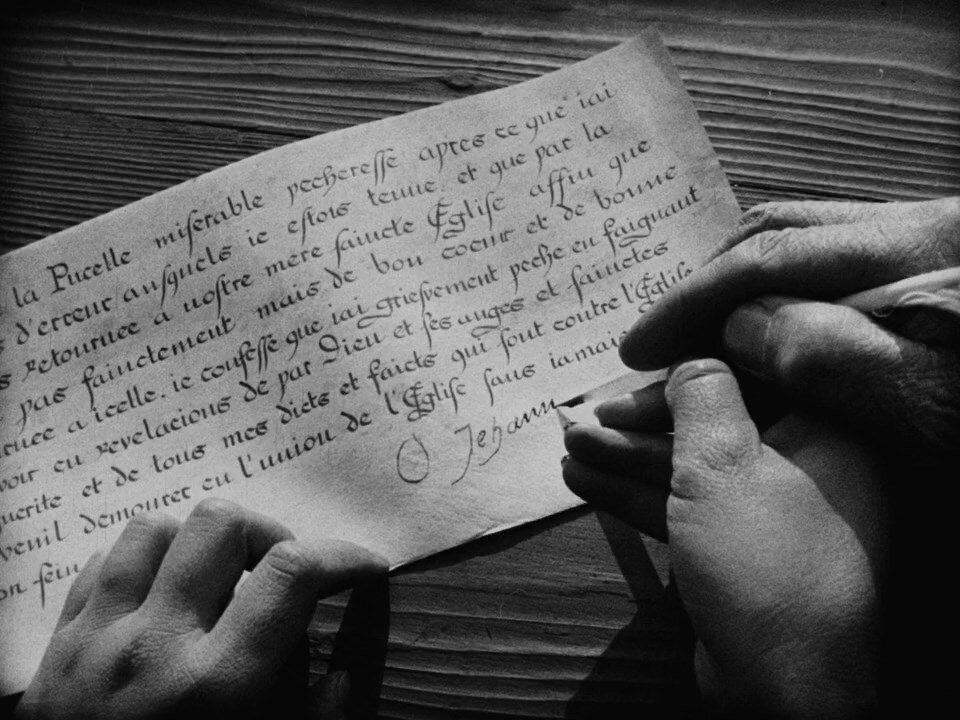 la Pucelle miserable pecheresse apres ce que iai
d'erreur ausquels ie estois tenue. et que par la
retournee a nostre mere saincte Eglise affin que
pas fainctement mais de bon coeur et de bonne
a icelle. ie confesse que iai griefvement peche en faignant
avoir eu revelacions de par Dieu et ses anges et sainctes
et de tous mes dicts et faicts qui sont contre l'Eglise
demourer en l'union de l'Eglise sans iamais
O Jehann